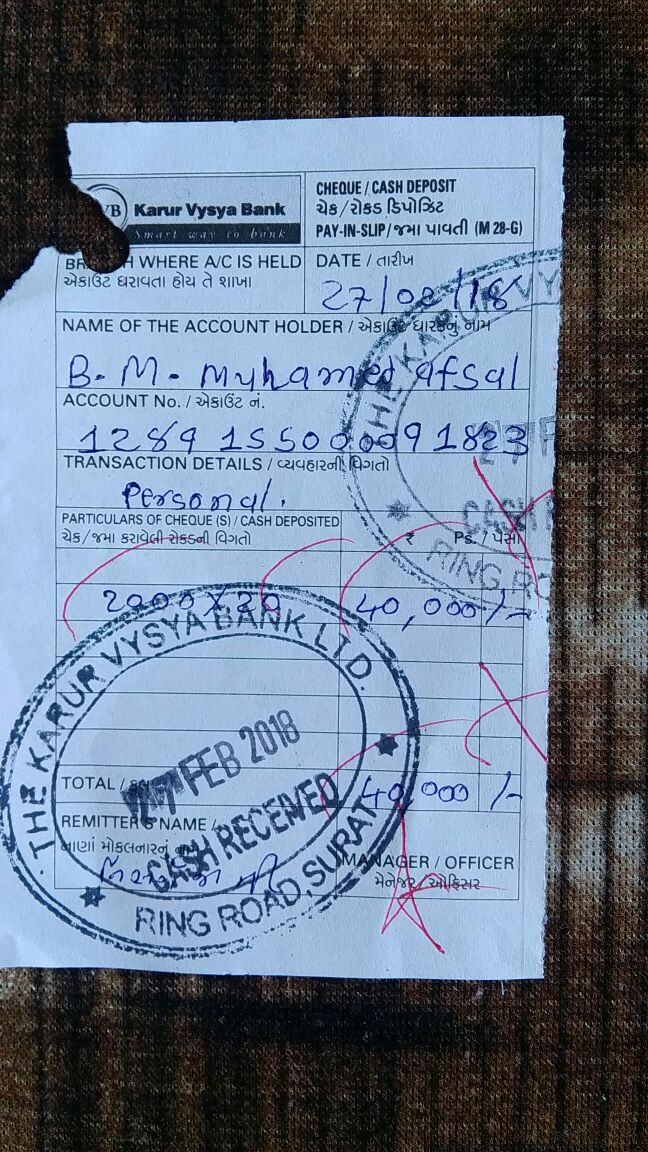 Karur Vysya Bank
Smart way to bank
CHEQUE / CASH DEPOSIT
ચેક / રોકડ ડિપોઝિટ
PAY-IN-SLIP / જમા પાવતી (M 28-G)
WHERE A/C IS HELD
એકાઉટ ધરાવતા હોય તે શાખા
DATE / તારીખ
27/02/18
NAME OF THE ACCOUNT HOLDER / એકાઉટ ધારકનું નામ
B. M. Muhamed Afsal
ACCOUNT No. / એકાઉટ નં.
1289 155000091823
TRANSACTION DETAILS / વ્યવહારની વિગતો
Personal.
PARTICULARS OF CHEQUE (S) / CASH DEPOSITED
ચેક / જમા કરાવેલી રોકડની વિગતો
₹ Ps. / પૈસા
2000 X 20 40,000 /-
TOTAL / 40,000 /-
REMITTER'S NAME /
નાણાં મોકલનારનું નામ
MANAGER / OFFICER
મેનેજર / ઓફિસર
THE KARUR VYSYA BANK LTD.
FEB 2018
CASH RECEIVED
RING ROAD, SURAT
THE KARUR VY
RING RO